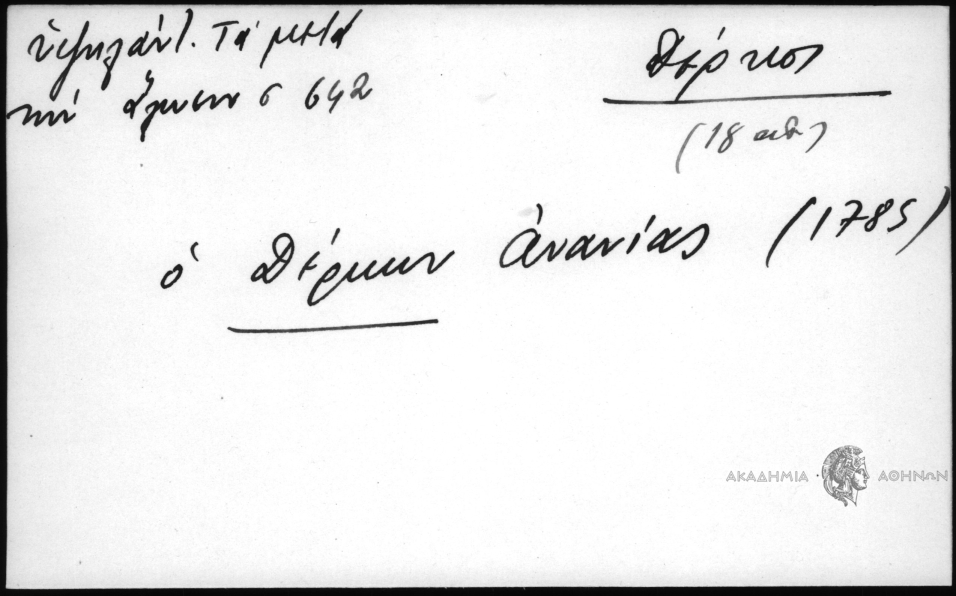 Ὑψηλάντ. Τὰ μετὰ
τὴν ἅλωσιν σ 642
Δέρκος
(18 αἰ)
ὁ Δέρκων Ἀνανίας (1785)
ΑΚΑΔΗΜΙΑ ΑΘΗΝΩΝ